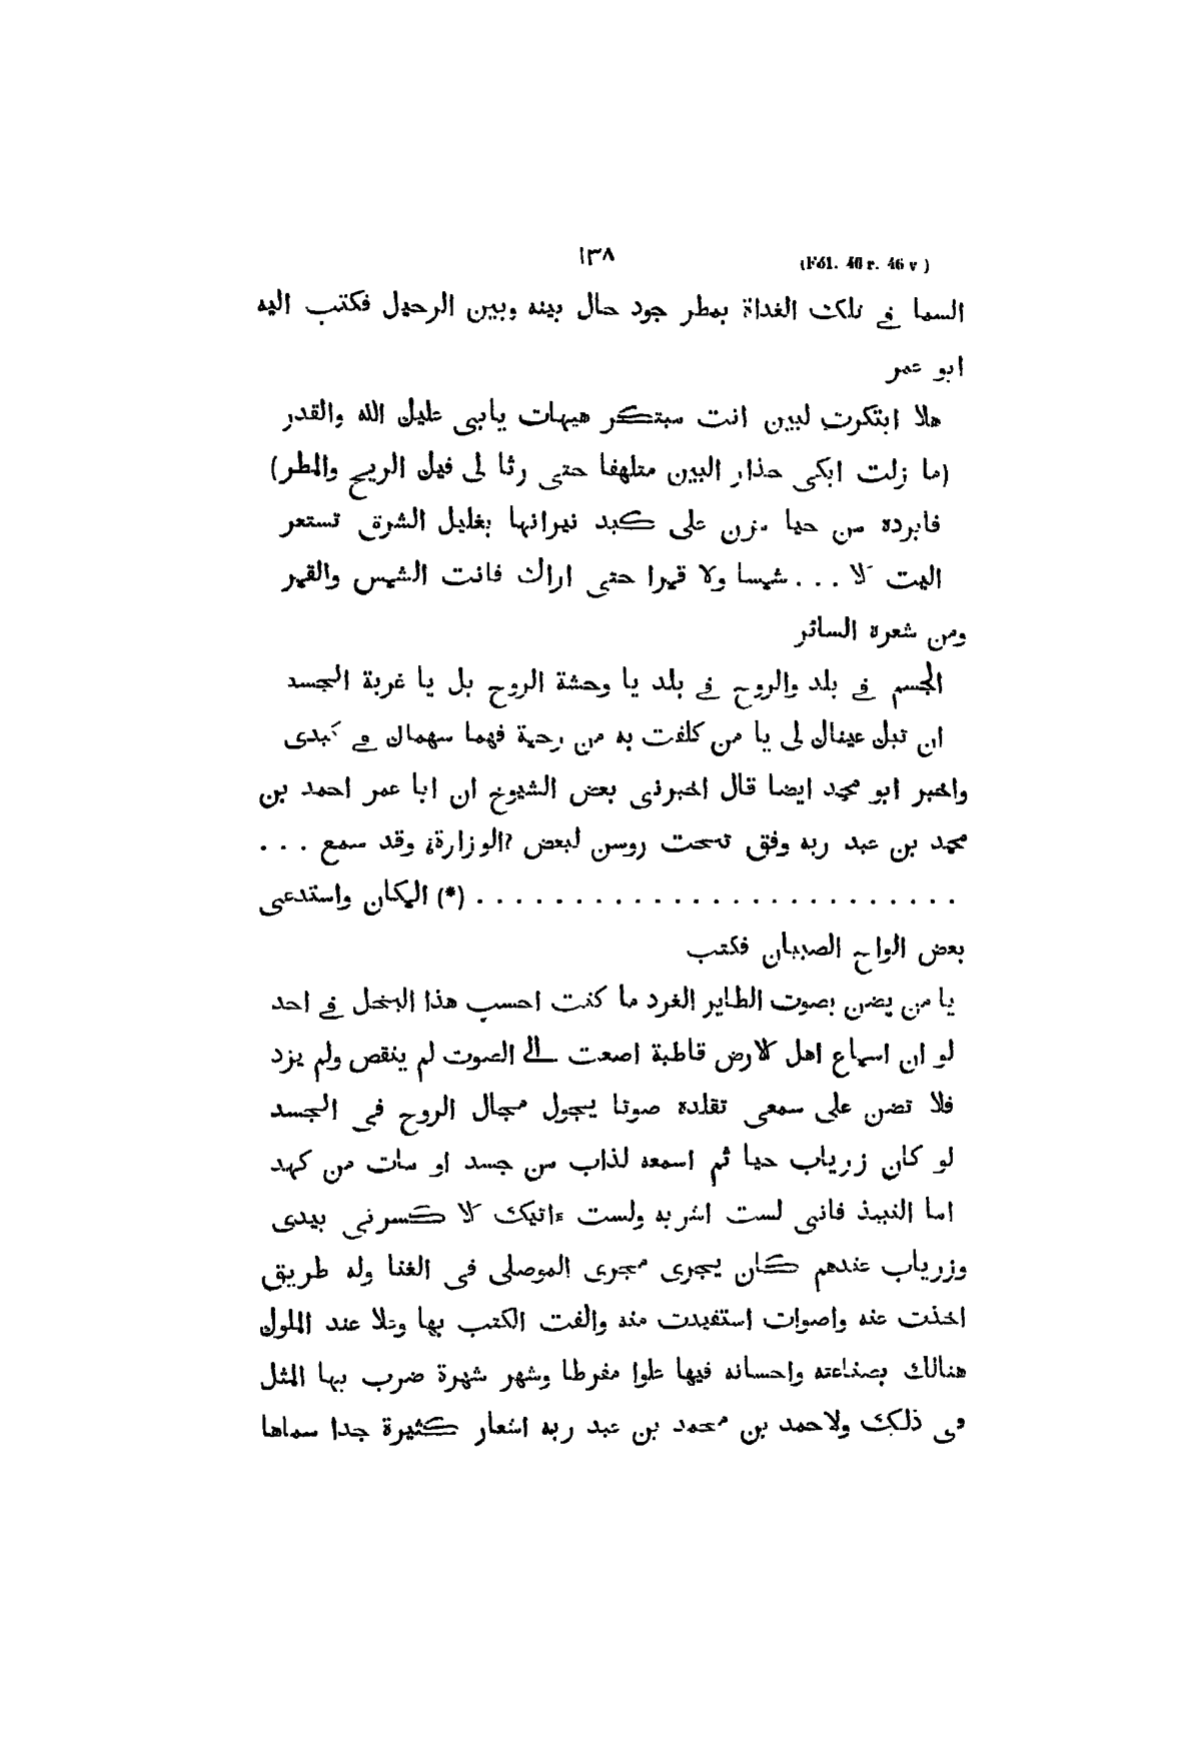 ١٣٨ (Fól. 46 r. 46 v)
السما في تلك الغداة بمطر جود حال بينه وبين الرحيل فكتب اليه
ابو عمر
هلا ابتكرت لبين انت مبتكر هيهات يابى عليك الله والقدر
(ما زلت ابكى حذار البين متلهفا حتى رثا لى فيك الريح والمطر)
فابرده من حيا مزن على كبد نيرانها بغليل الشرق تستعر
اليت لا ... شمسا ولا قمرا حتى اراك فانت الشمس والقمر
ومن شعره السائر
الجسم في بلد والروح في بلد يا وحشة الروح بل يا غربة الجسد
ان تبك عيناك لى يا من كلفت به من رحمة فهما سهماك في كبدى
واخبر ابو محمد ايضا قال اخبرنى بعض الشيوخ ان ابا عمر احمد بن
محمد بن عبد ربه وفق تحت روسن لبعض ?الوزارة¿ وقد سمع ...
........................ (*) المكان واستدعى
بعض الواح الصبيان فكتب
يا من يضن بصوت الطاير الغرد ما كنت احسب هذا البخل في احد
لو ان اسماع اهل الارض قاطبة اصعت الى الصوت لم ينقص ولم يزد
فلا تضن على سمعى تقلده صوتا يجول مجال الروح فى الجسد
لو كان زرياب حيا ثم اسمعه لذاب من جسد او مات من كمد
اما النبيذ فانى لست اشربه ولست ءاتيك الا كسرتى بيدى
وزرياب عندهم كان يجرى مجرى الموصلى فى الغنا وله طريق
اخذت عنه واصوات استفيدت منه والفت الكتب بها وعلا عند الملوك
هنالك بصناعته واحسانه فيها علوا مفرطا وشهر شهرة ضرب بها المثل
فى ذلك ولاحمد بن محمد بن عبد ربه اشعار كثيرة جدا سماها